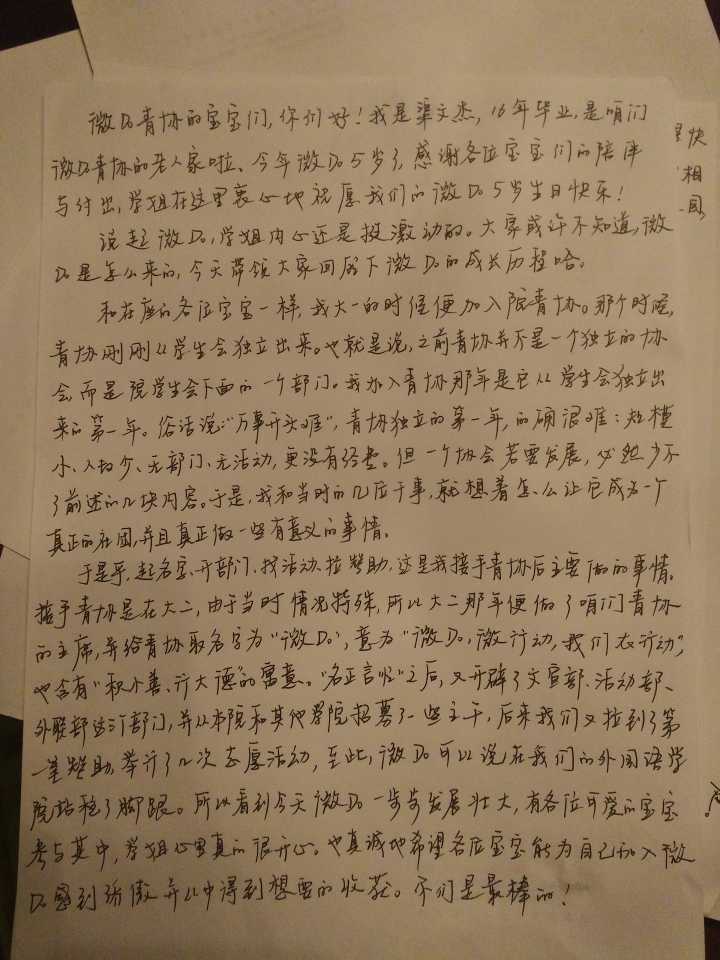 微Do青协的宝宝们,你们好!我是渠文杰,16年毕业,是咱们
微Do青协的老人家啦、今年微Do5岁了,感谢各位宝宝们的陪伴
与付出,学姐在这里衷心地祝愿我们的微Do5岁生日快乐!
说起微Do,学姐内心还是挺激动的。大家或许不知道,微
Do是怎么来的,今天带领大家回顾下微Do的成长历程哈。
和在座的各位宝宝一样,我大一的时候便加入院青协。那个时候,
青协刚刚从学生会独立出来。也就是说,之前青协并不是一个独立的协
会,而是院学生会下面的一个部门。我加入青协那年是它从学生会独立出
来的第一年。俗话说:"万事开头难",青协独立的第一年,的确很难:规模
小、人均少、无部门、无活动,更没有经费。但一个协会若要发展,必然少不
了前述的几块内容。于是,我和当时的几位干事,就想着怎么让它成为一个
真正的社团,并且真正做一些有意义的事情。
于是乎,起名字、开部门、找活动、拉赞助,这是我接手青协后主要做的事情。
接手青协是在大二,由于当时情况特殊,所以大二那年便做了咱们青协
的主席,并给青协取名字为"微Do",意为"微Do,微行动,我们在行动",
也含有"积小善、行大德"的寓意。"名正言顺"之后,又开辟了文宣部、活动部、
外联部这几部门,并从本院和其他学院招募了一些主干,后来我们又拉到了第
一笔赞助,举行了几次志愿活动,至此,微Do可以说在我们的外国语学
院站稳了脚跟。所以看到今天微Do一步步发展壮大,有各位可爱的宝宝
参与其中,学姐心里真的很开心。也真诚地希望各位宝宝能为自己加入微
Do感到骄傲并从中得到想要的收获。你们是最棒的!
快
相